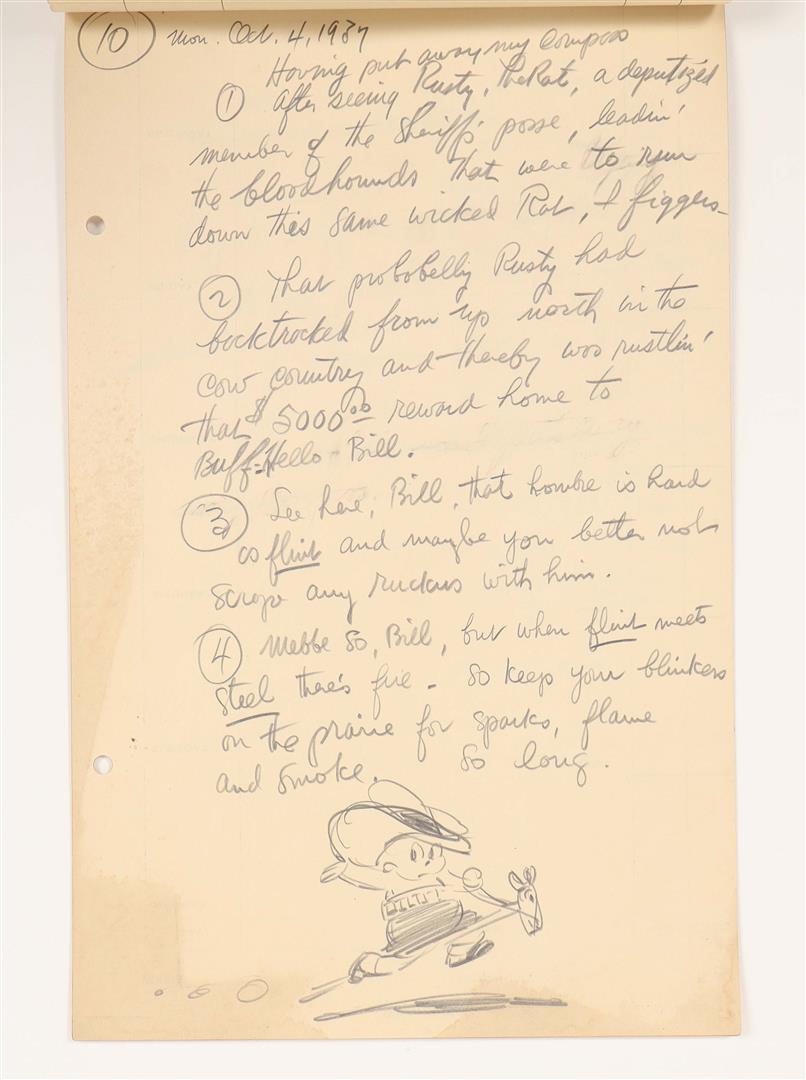 10 Mon. Oct. 4, 1937
Having put away my compass
① after seeing Rusty, The Rat, a deputized
member of the Sheriff's posse, leadin'
the bloodhounds that were to run
down this same wicked Rat, I figgers-
② That probobelly Rusty had
backtracked from up north in the
cow country and thereby was rustlin'
that $5000.00 reward home to
Buff-Hello-Bill.
③ See here, Bill, that hombre is hard
as flint and maybe you better not
scrape any ruckus with him.
④ Mebbe so, Bill, but when flint meets
steel there's fire - So keep your blinkers
on the prairie for sparks, flame
and smoke. So long.